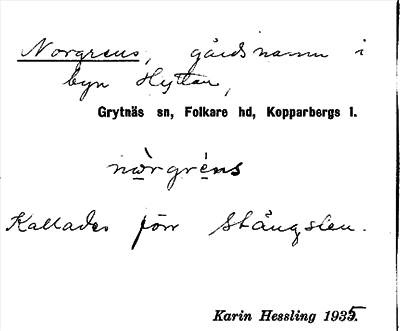 Norgrens, gårdsnamn i
byn Hyttan,
Grytnäs sn, Folkare hd, Kopparbergs l.
nòrgréns
Kallades förr Stångslen.
Karin Hessling 1935.